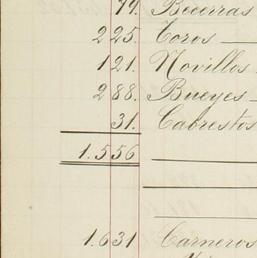 79. Becerras
225. Toros
121. Novillos
288. Bueyes
31. Cabrestos
1.556
1.631 Carneros